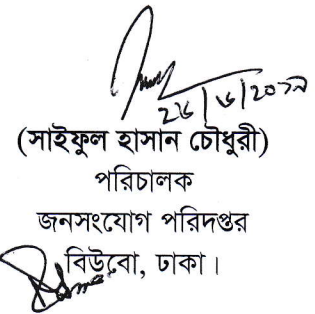 (সাইফুল হাসান চৌধুরী)
পরিচালক
জনসংযোগ পরিদপ্তর
বিউবো, ঢাকা।